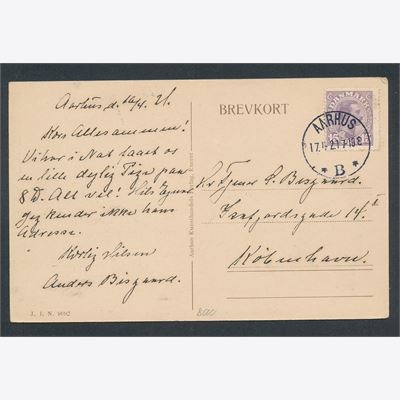 Aarhus, d. 16/4. 21.
Kors Allesammen!
Vi har i Nat faaet os
en lille dejlig Pige paa
8 D. Alt vel! Hils
jeg kender ikke hans
Adresse.
Kærlig Hilsen
Anders Bisgaard.
J. J. N. 9692
Aarhus Kunsthandels Forlag, Eneret
BREVKORT
DANMARK
15
AARHUS
17.4.21.7-10 E
* B *
Hr Tjener S. Bisgaard.
Isefjordsgade 14. I
København.